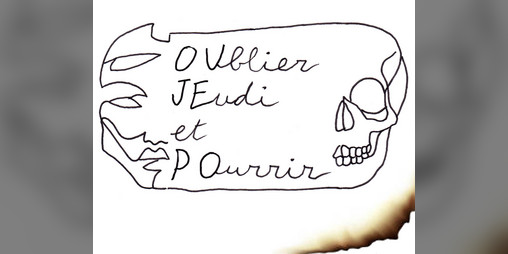 OUblier
JEudi
et
POurrir